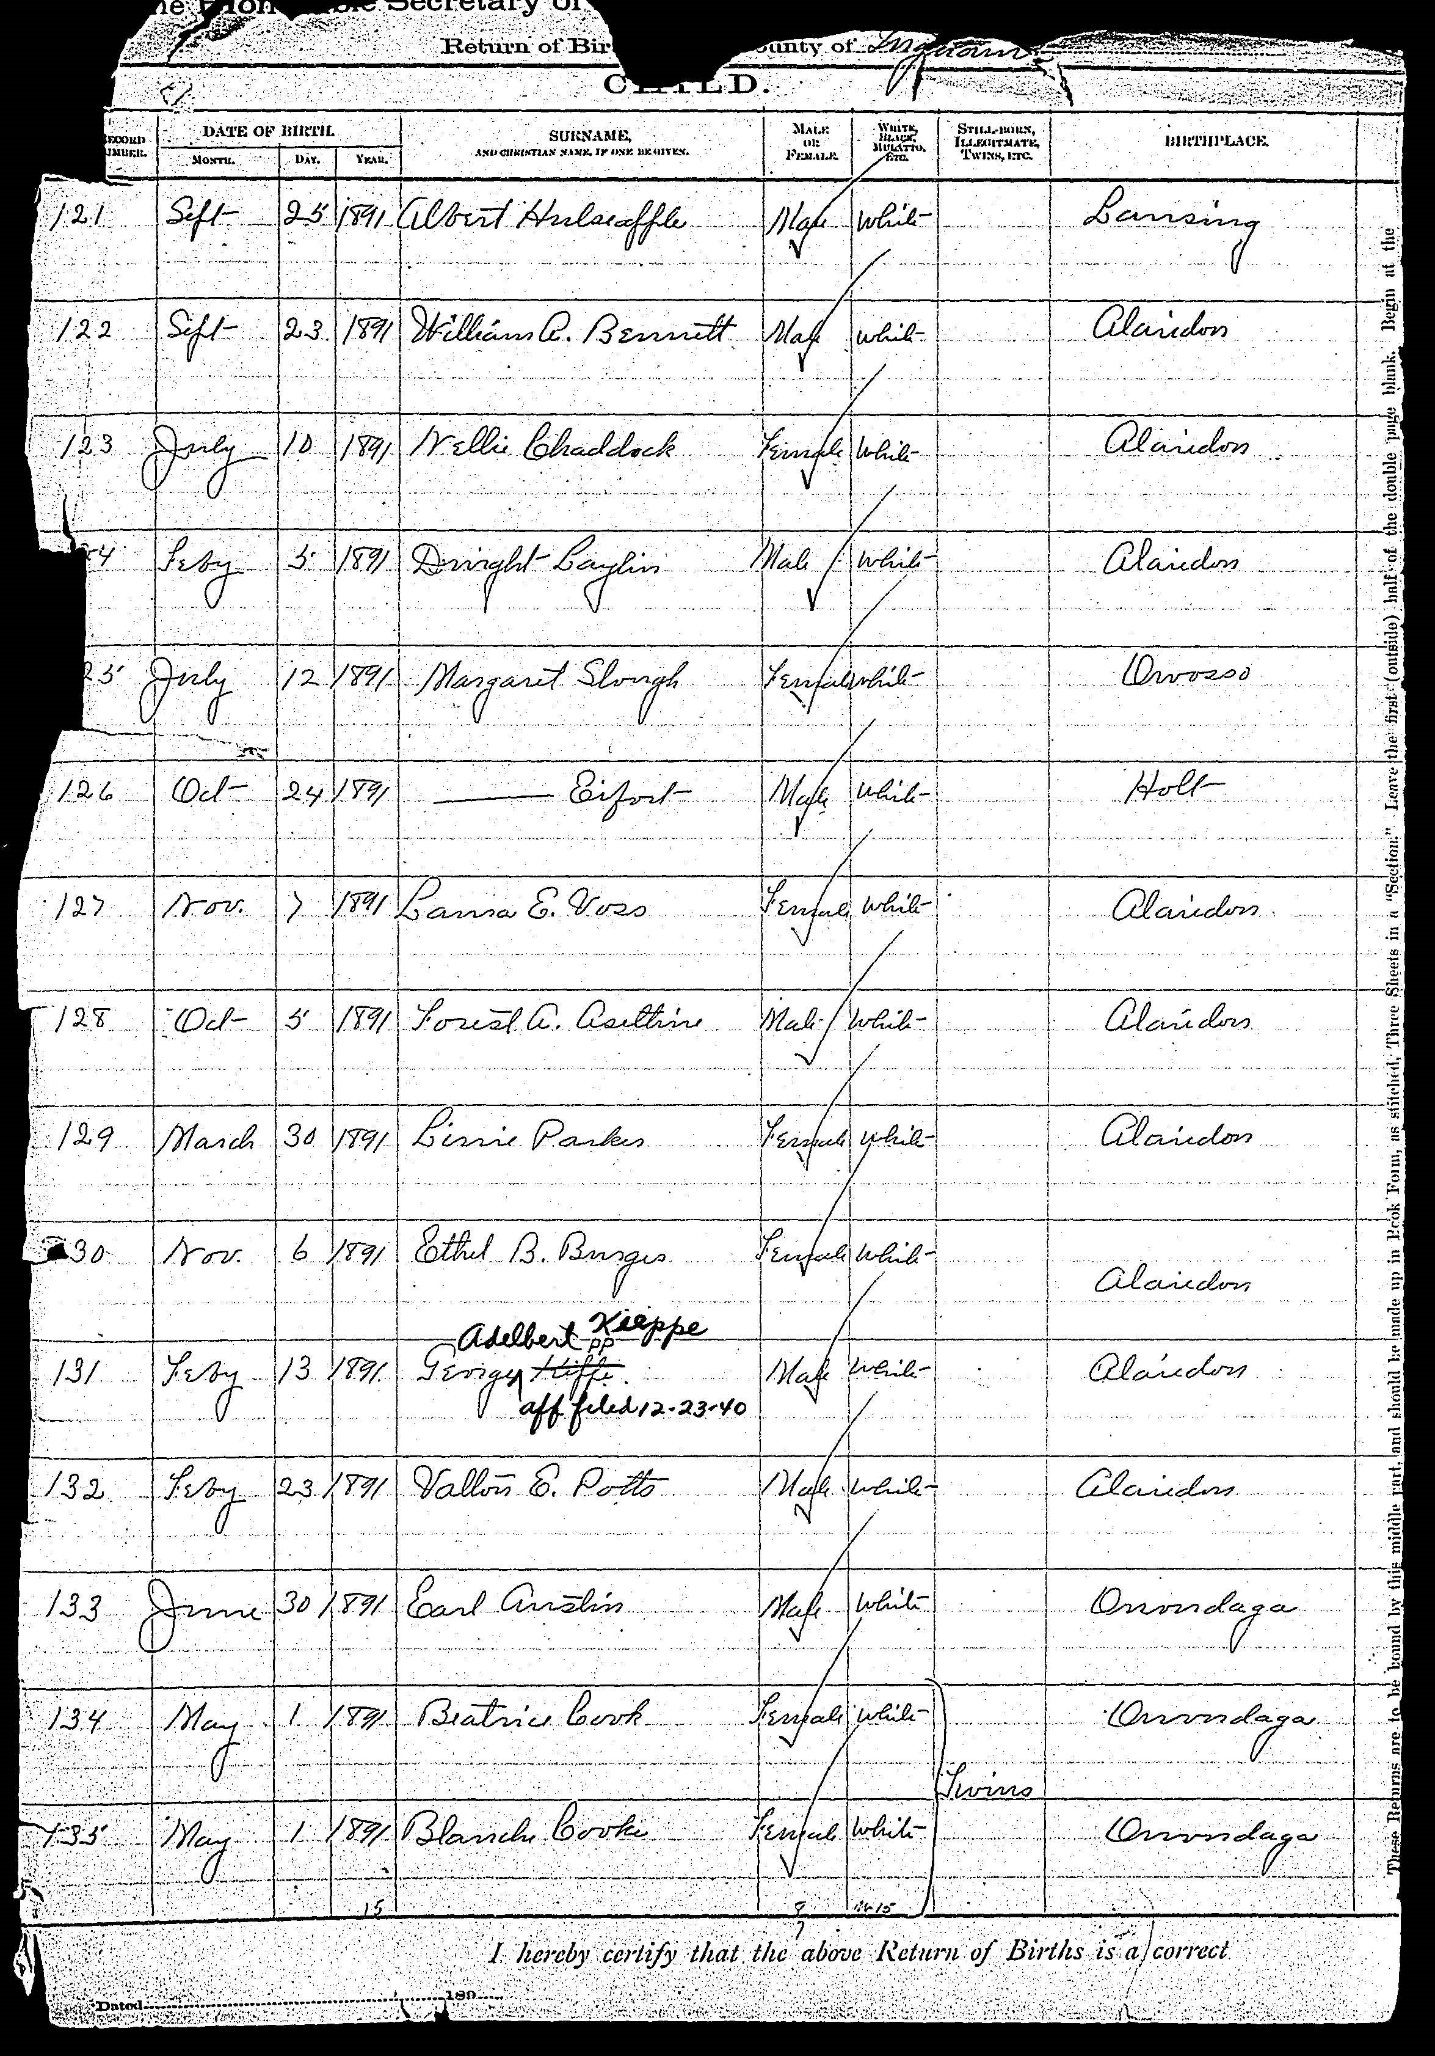 Secretary of
Return of Bir unty of Ingham
CHILD.
RECORD NUMBER. DATE OF BIRTH. MONTH. DAY. YEAR. SURNAME, AND CHRISTIAN NAME, IF ONE BE GIVEN. MALE OR FEMALE. WHITE, BLACK, MULATTO, ETC. STILL-BORN, ILLEGITMATE, TWINS, ETC. BIRTHPLACE.
121 Sept 25 1891 Albert Hulseapple Male White Lansing
122 Sept 23 1891 William A. Bennett Male White Alaiedon
123 July 10 1891 Nellie Chaddock Female White Alaiedon
24 Feby 5 1891 Dwight Laylin Male White Alaiedon
25 July 12 1891 Margaret Slough Female White Owosso
126 Oct 24 1891 —— Eifort Male White Holt
127 Nov. 7 1891 Laura E. Voss Female White Alaiedon
128 Oct 5 1891 Forest A. Aseltine Male White Alaiedon
129 March 30 1891 Parker Female White Alaiedon
30 Nov. 6 1891 Ethel B. Burges Female White Alaiedon
Adelbert Kieppe
pp
131 Feby 13 1891 George Kiffe Male White Alaiedon
aff filed 12-23-40
132 Feby 23 1891 Valton E. Potts Male White Alaiedon
133 June 30 1891 Earl Austin Male White Onondaga
134 May 1 1891 Beatrice Cook Female White Onondaga
Twins
135 May 1 1891 Blanche Cooke Female White Onondaga
15 8 15
7
I hereby certify that the above Return of Births is a correct
Dated 189
These Returns are to be bound by this middle part, and should be made up in Book Form, as stitched, Three Sheets in a "Section." Leave the first (outside) half of the double page blank. Begin at the